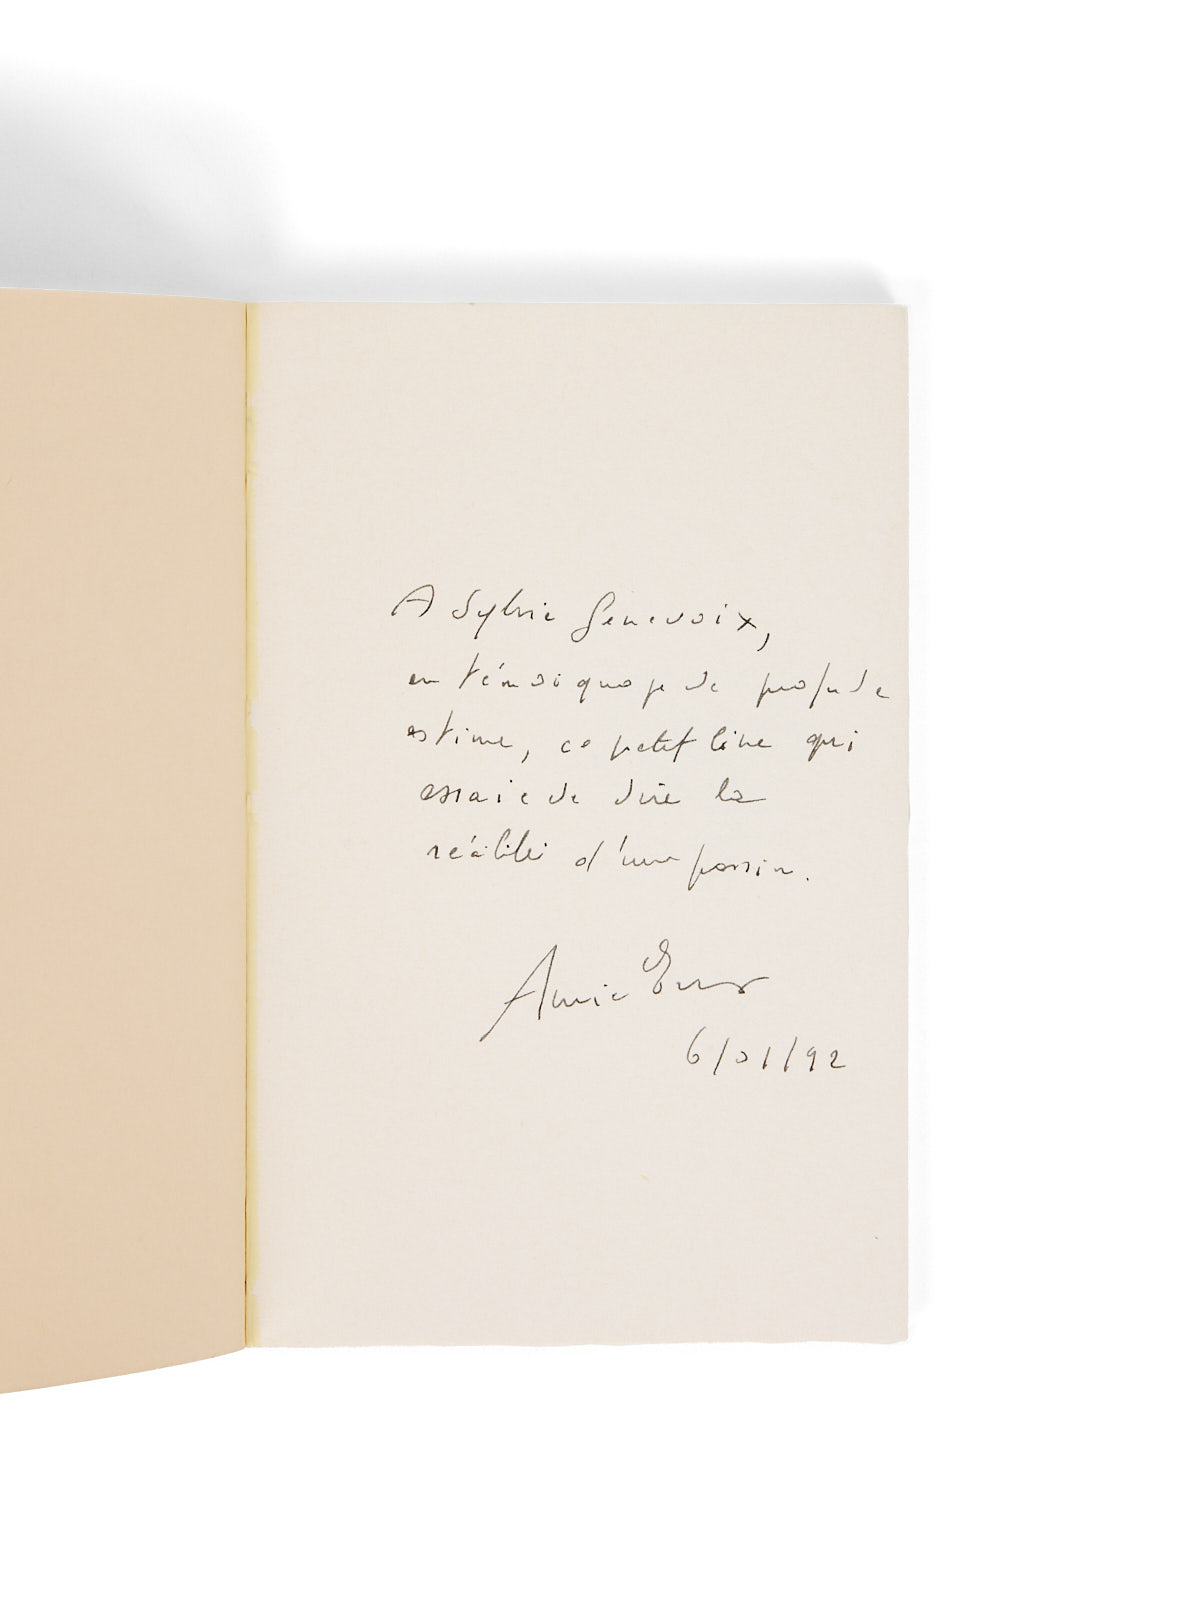 A Sylvie Genevoix,
en témoignage de profonde
estime, ce petit livre qui
essaie de dire la
réalité d'une passion.
Annie Ernaux
6/01/92